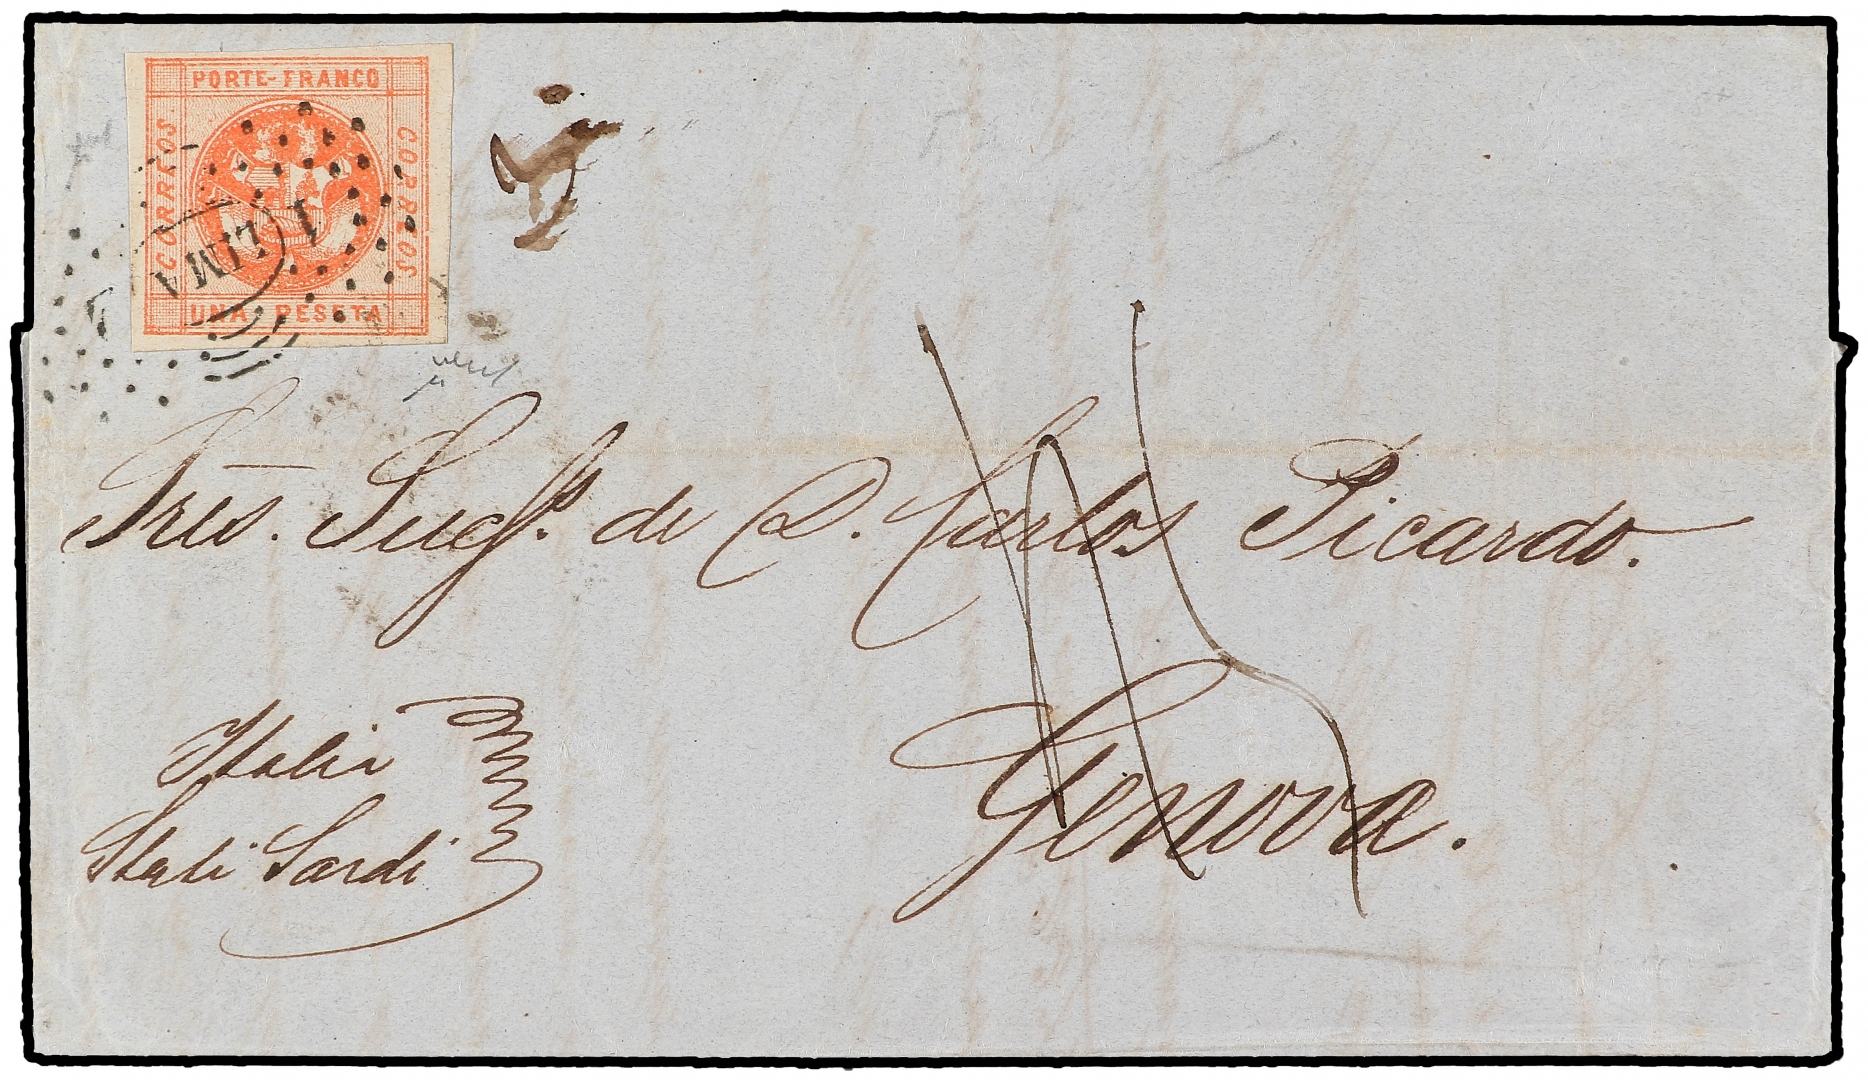 PORTE-FRANCO
CORREOS
CORREOS
UNA PESETA
1
LIMA
Sres. Sucs. de D. Carlos Picardo.
Genova.
Italia
Stati Sardi